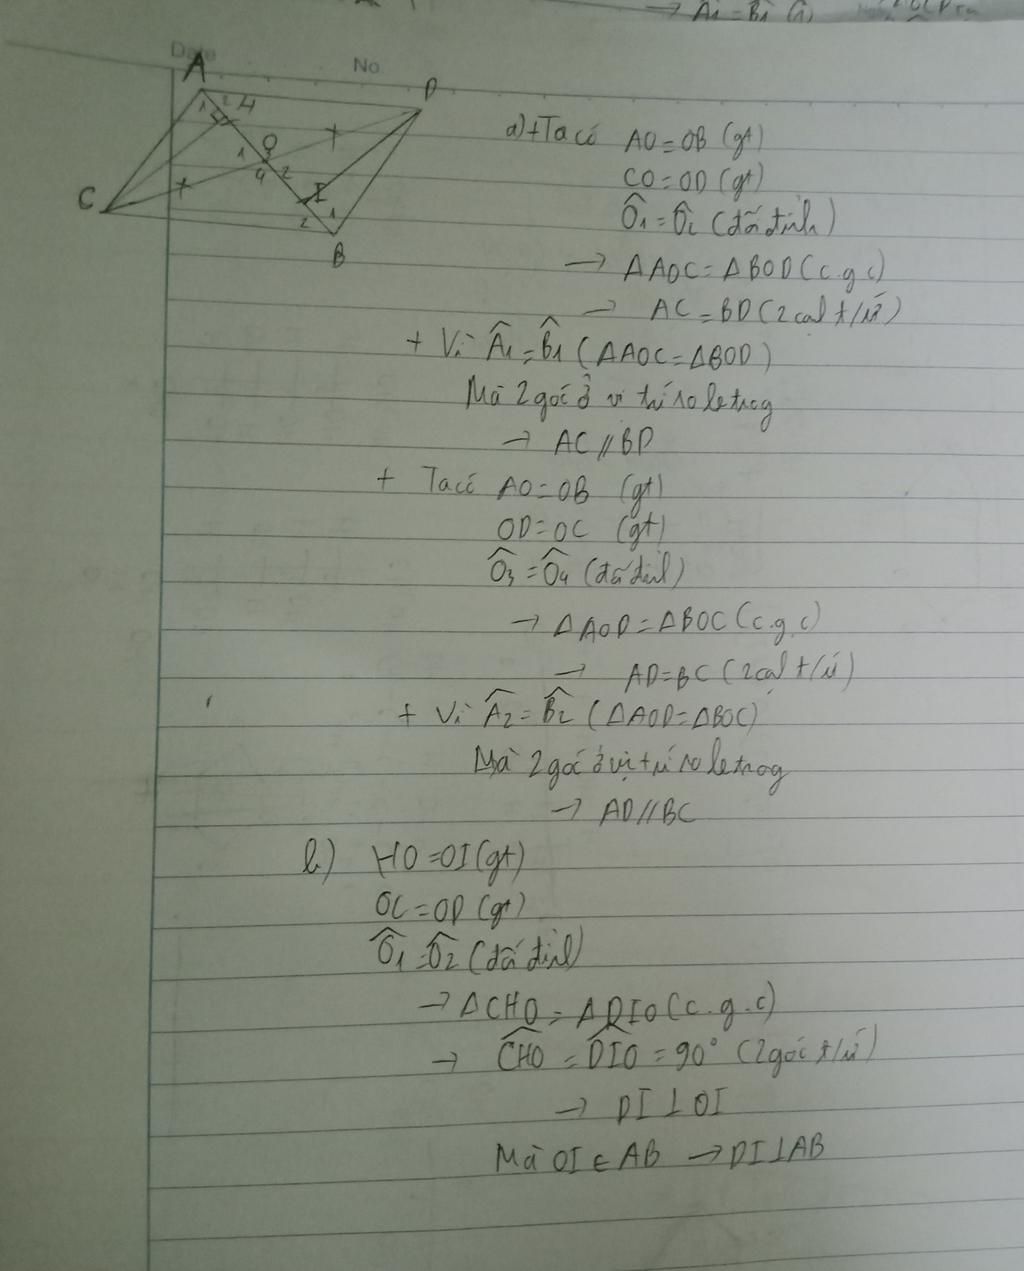 → Â1 = B̂1 (1)
Date
No
A
D
1 2 H
O
1 3 2
4
I
C
2 1
B
a) + Ta có AO = OB (gt)
CO = OD (gt)
Ô1 = Ô2 (đối đỉnh)
→ ΔAOC = ΔBOD (c.g.c)
→ AC = BD (2 cạh t/ứ)
+ Vì Â1 = B̂1 (ΔAOC = ΔBOD)
Mà 2 góc ở vị trí so le trog
→ AC // BD
+ Ta có AO = OB (gt)
OD = OC (gt)
Ô3 = Ô4 (đối đỉnh)
→ ΔAOD = ΔBOC (c.g.c)
→ AD = BC (2 cạh t/ứ)
+ Vì Â2 = B̂2 (ΔAOD = ΔBOC)
Mà 2 góc ở vị trí so le trog
→ AD // BC
b) HO = OI (gt)
OC = OD (gt)
Ô1 = Ô2 (đối đỉnh)
→ ΔCHO = ΔDIO (c.g.c)
→ CHO = DIO = 90° (2 góc t/ứ)
→ DI ⊥ OI
Mà OI ∈ AB → DI ⊥ AB